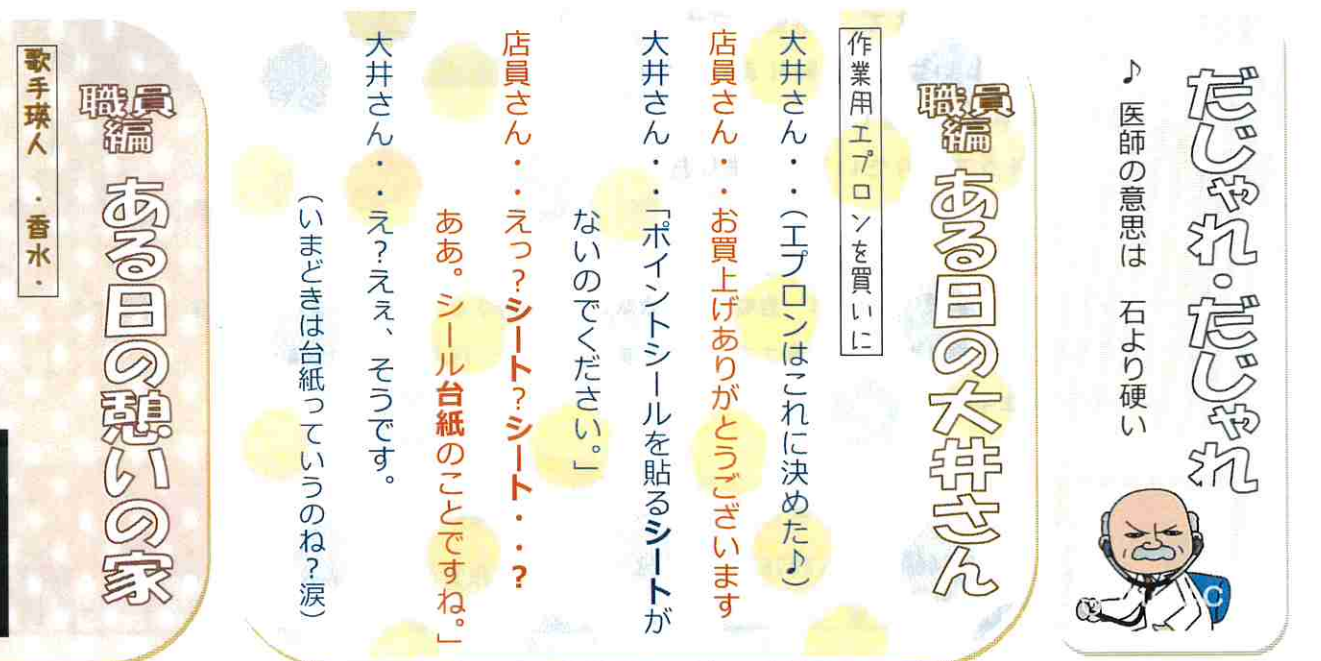 だじゃれ・だじゃれ
♪ 医師の意思は 石より硬い
C
職員編 ある日の大井さん
作業用エプロンを買いに
大井さん・・（エプロンはこれに決めた♪）
店員さん・・お買上げありがとうございます
大井さん・・「ポイントシールを貼るシートが
ないのでください。」
店員さん・・えっ?シート?シート・・?
ああ。シール台紙のことですね。」
大井さん・・え?えぇ、そうです。
（いまどきは台紙っていうのね?涙）
職員編 ある日の憩いの家
歌手瑛人 ・香水・